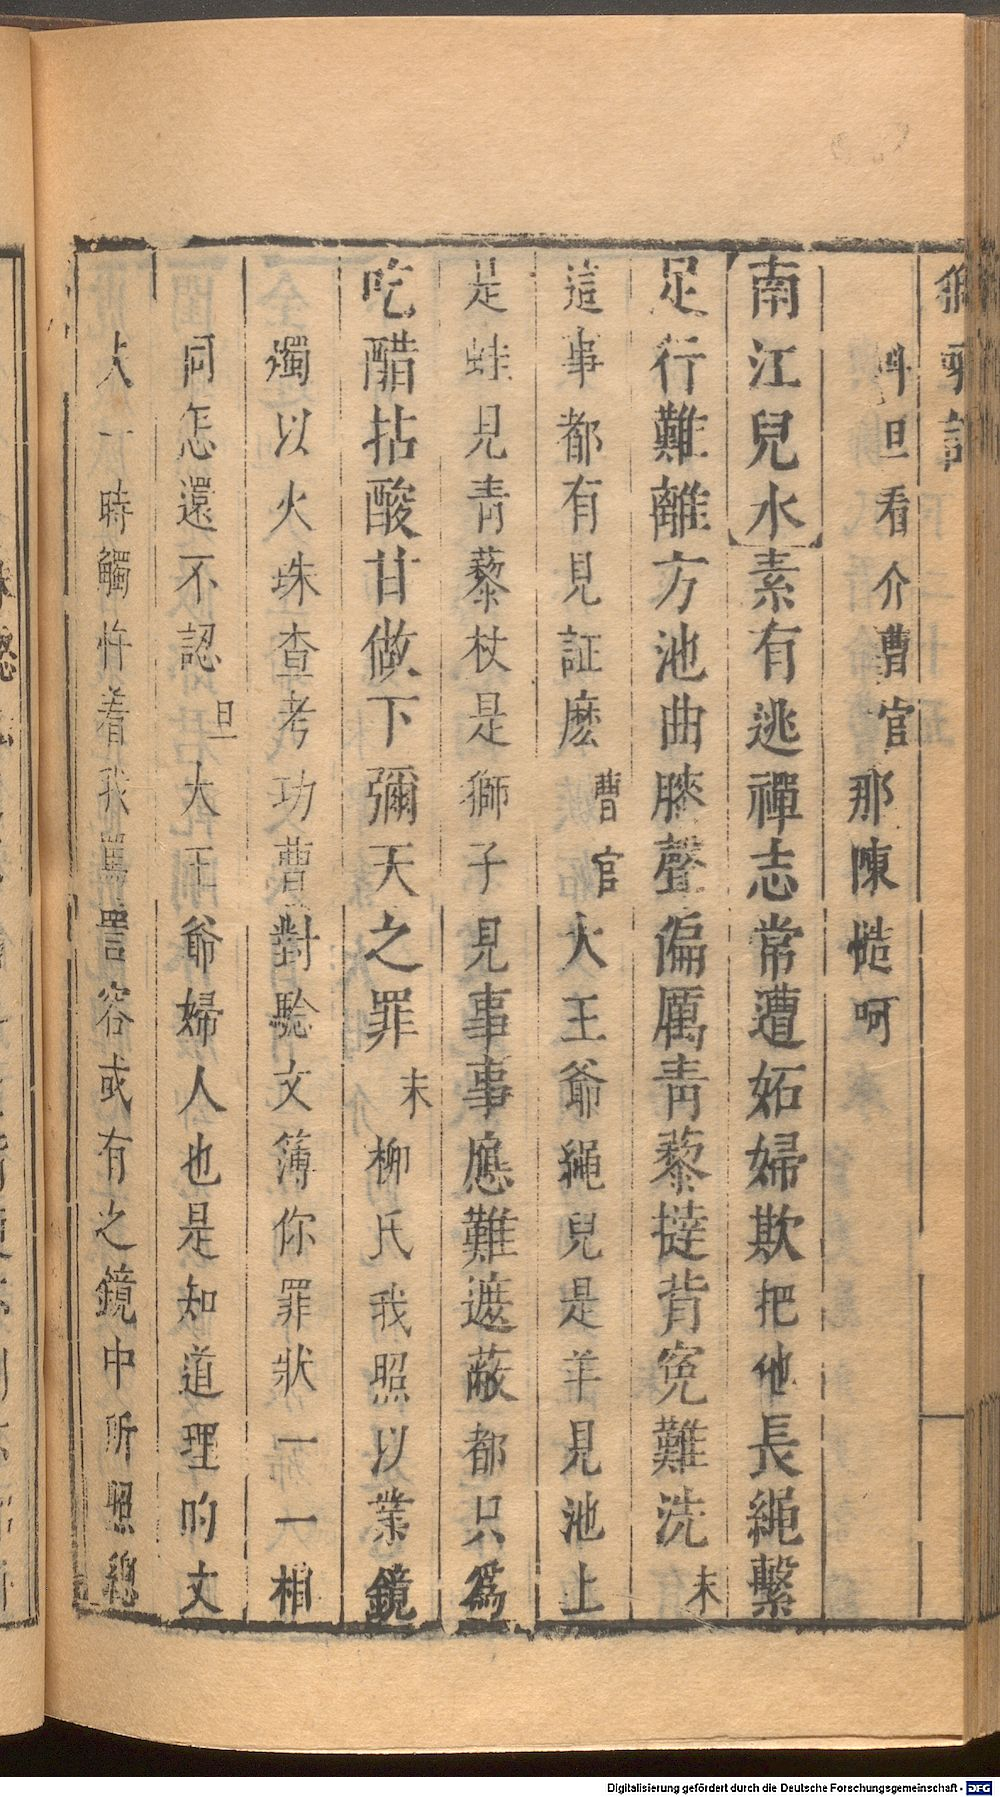 獅吼記
科旦看介曹官那陳慥呵
南江兒水素有逃禪志常遭妬婦欺把他長繩繫
足行難離方池曲膝聲偏厲青藜撻背寃難洗末
這事都有見証麽曹官大王爺繩兒是羊見池上
是蛙見青藜杖是獅子見事事應難遮蔽都只爲
吃醋拈酸甘做下彌天之罪末柳氏我照以業鏡
燭以火珠查考功曹對驗文簿你罪狀一一相
同怎還不認旦大王爺婦人也是知道理的文
人一時觸忤着我罵詈容或有之鏡中所照總
Digitalisierung gefördert durch die Deutsche Forschungsgemeinschaft - DFG